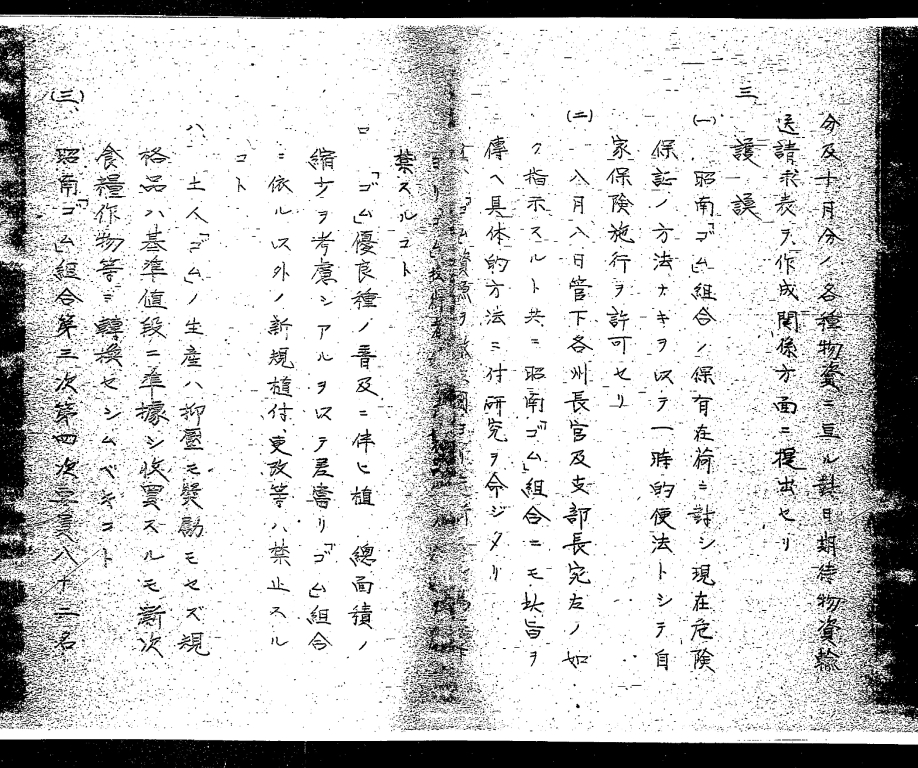 分及十月分ノ各種物資ニ亘ル對日期待物資輸
送請求表ヲ作成關係方面ニ提出セリ
三 護謨
(一) 昭南「ゴム」組合ノ保有在荷ニ討シ現在危険
保証ノ方法ナキヲ以テ一時的便法トシテ自
家保険施行ヲ許可セリ
(二) 八月八日管下各州長官及支部長宛左ノ如
ク指示スルト共ニ昭南「ゴム」組合ニモ此旨ヲ
傳ヘ具体的方法ニ付研究ヲ命ジタリ
禁スルコト
ロ 「ゴム」優良種ノ普及ニ伴ヒ植 總面積ノ
縮少ヲ考慮シアルヲ以テ君嘗リ「ゴム」組合
ニ依ル以外ノ新規植付、更改等ハ禁止スル
コト
ハ、土人「ゴム」ノ生産ハ抑壓モ奨励モセズ規
格品ハ基準値段ニ準據シ收買スルモ漸次
食糧作物等ニ轉換セシムベキコト
(三)、昭南「ゴム」組合第三次第四次 員八十二名